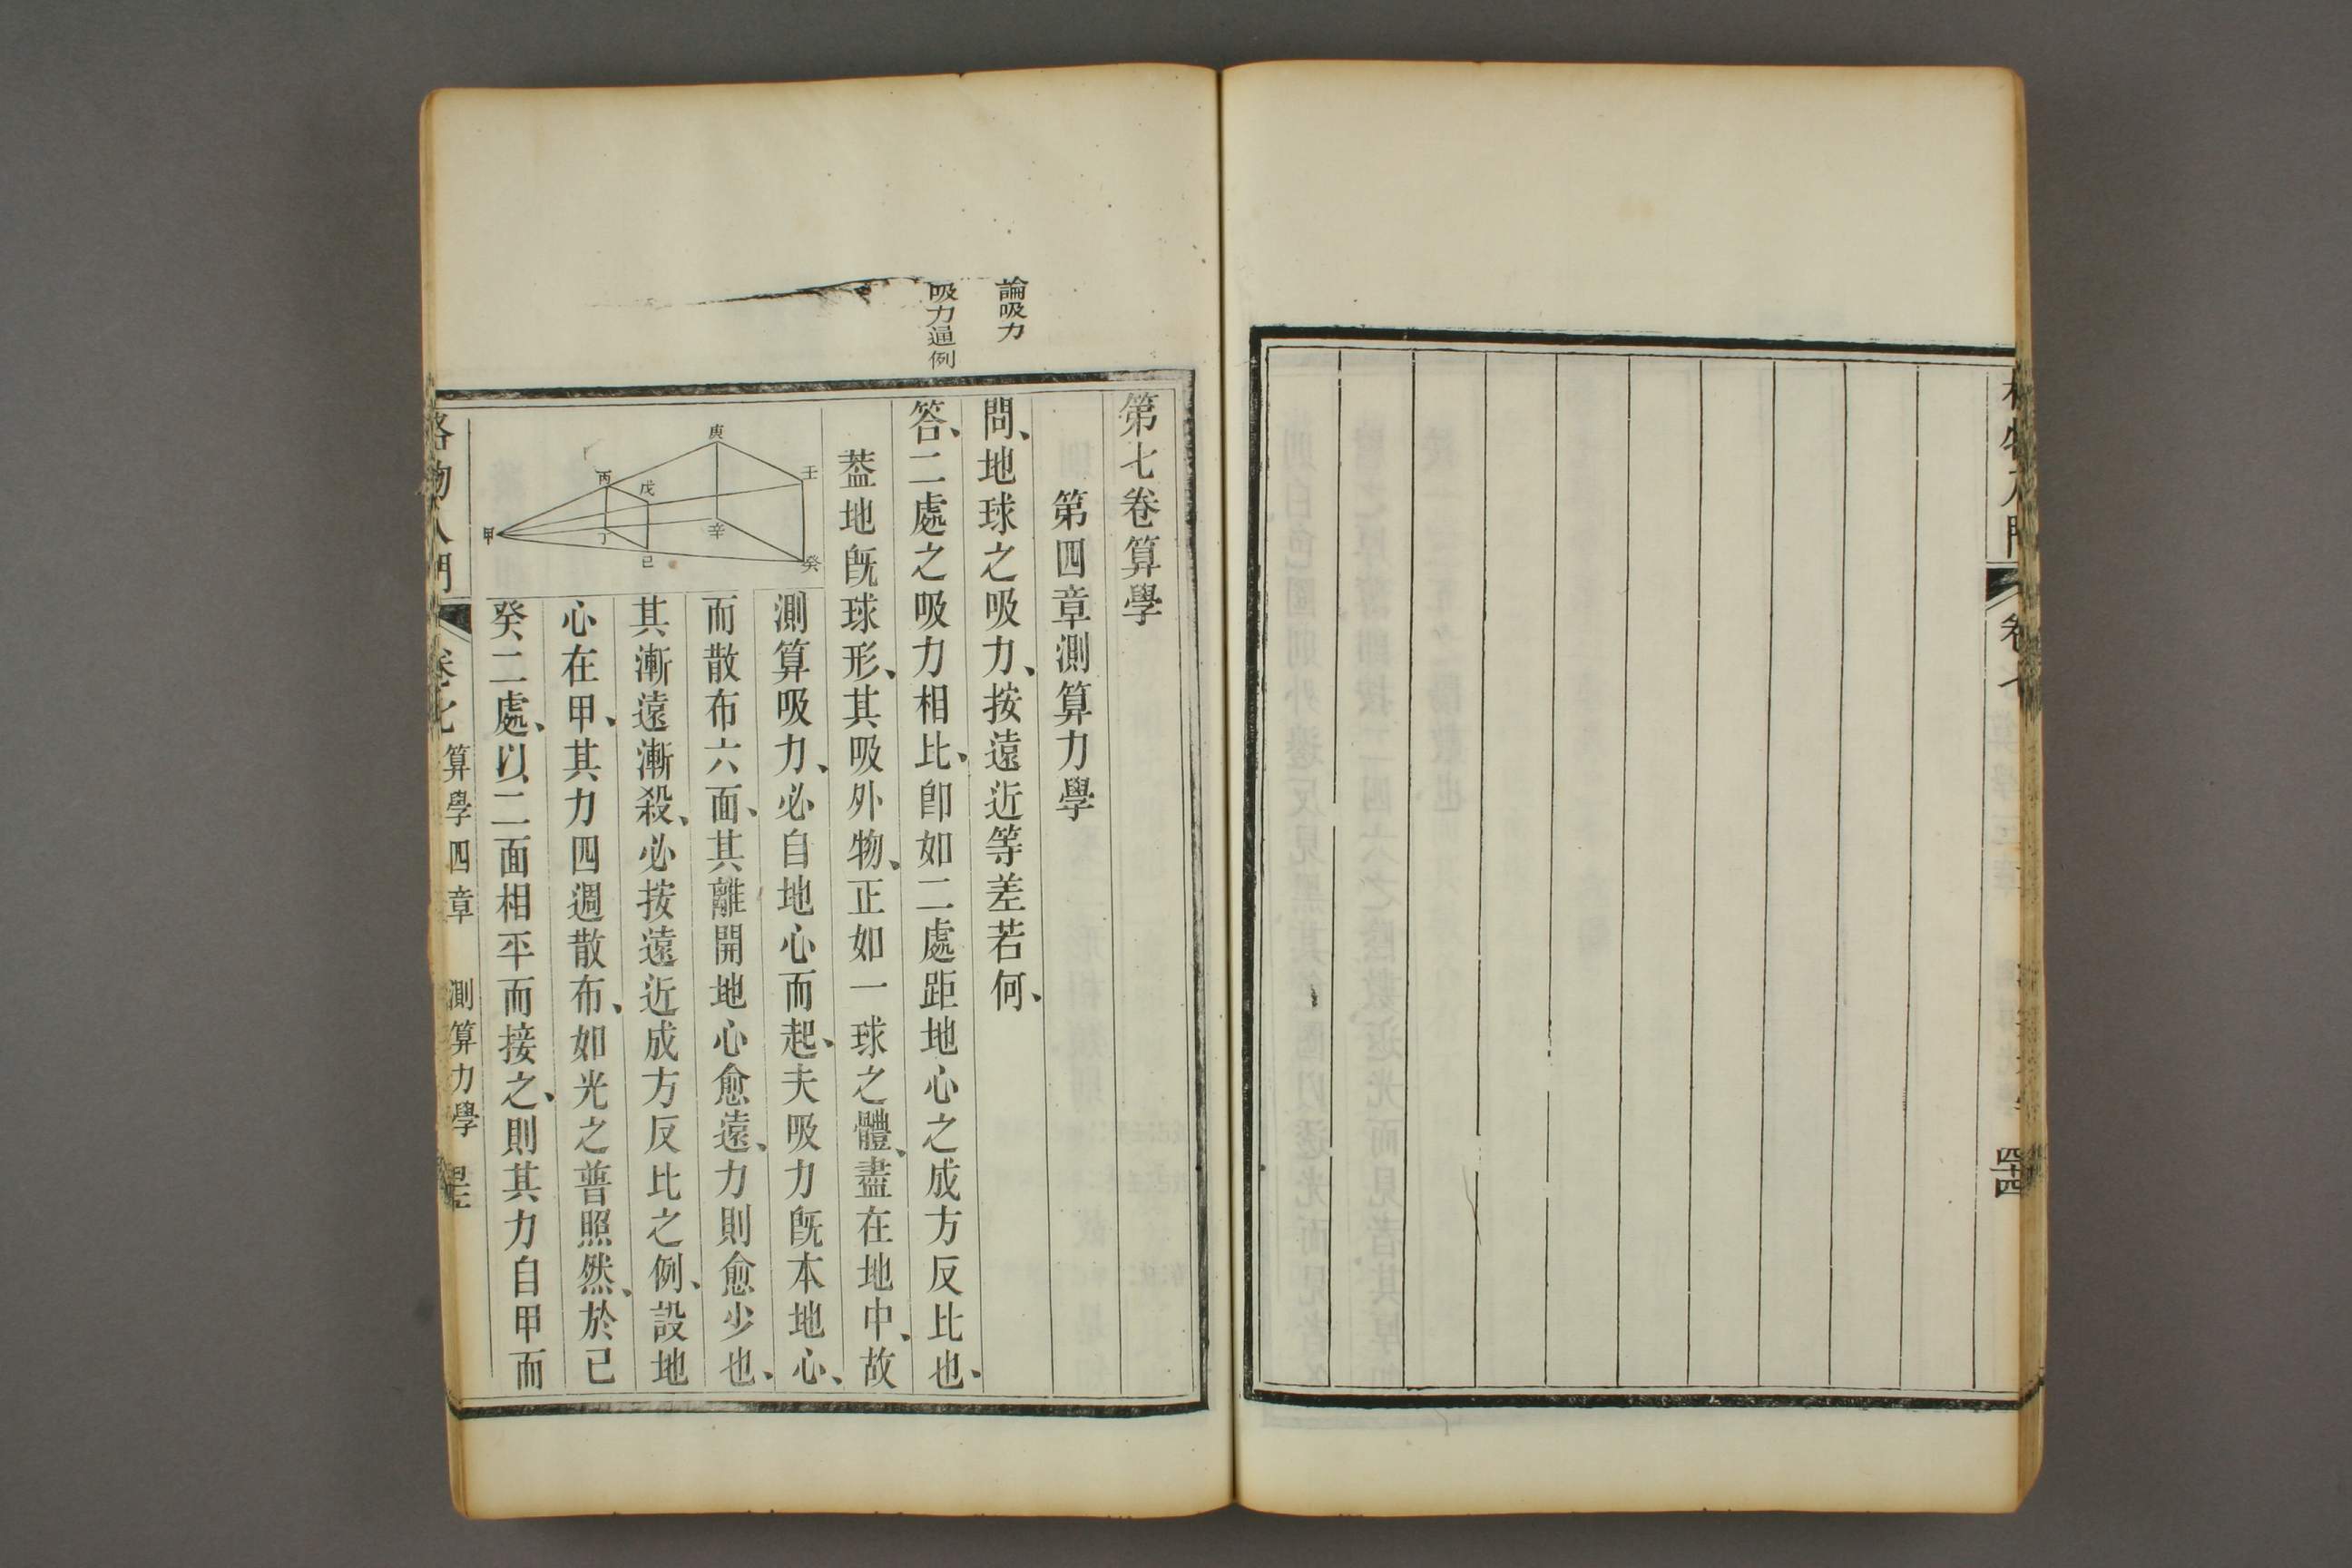 卷七
四十四
論吸力
吸力逼例
第七卷算學
第四章測算力學
問、地球之吸力、按遠近等差若何、
答、二處之吸力相比、卽如二處距地心之成方反比也、
葢地旣球形、其吸外物、正如一球之體、盡在地中、故
測算吸力、必自地心而起、夫吸力旣本地心、
而散布六面、其離開地心愈遠、力則愈少也、
其漸遠漸殺、必按遠近成方反比之例、設地
心在甲、其力四週散布、如光之普照然、於己
癸二處、以二面相平而接之、則其力自甲而
庚
壬
丙
戊
甲
丁
辛
己
癸
格物入門
卷七
算學四章 測算力學